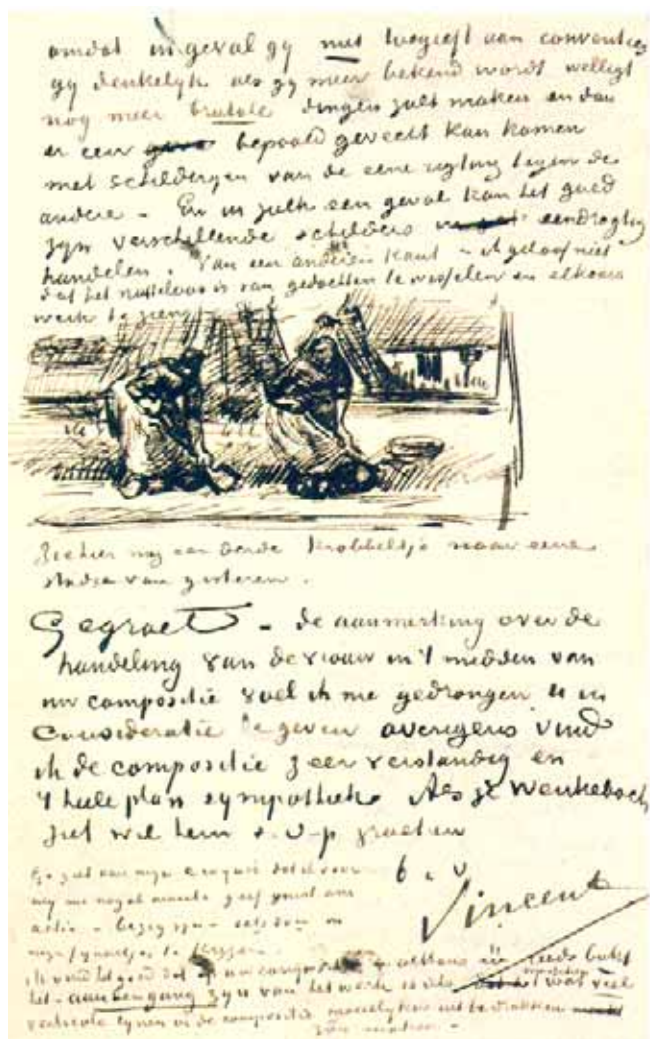 omdat in geval gy niet toegeeft aan conventies
gy denkelyk als gy meer bekend wordt welligt
nog meer brutale dingen zult maken en dan
er een bepaald gevecht kan komen
met schilderyen van de eene rigting tegen de
andere - En in zulk een geval kan het goed
zyn verschillende schilders eendragtig
handelen. Van een anderen kant - ik geloof niet
dat het nutteloos is van gedachten te wisselen en elkaars
werk te zien
Ziehier nog een derde krabbeltje naar eene
studie van gisteren.
Gegroet - de aanmerking over de
handeling van de vrouw in 't midden van
uw compositie voel ik me gedrongen u in
Consideratie te geven overigens vind
ik de compositie zeer verstandig en
't heele plan sympathiek. Als je Wenkebach
ziet wil hem s.v.p. groeten
b. à v.
Vincent
Ge ziet aan myn croquis dat ik voor
my me nogal moeite geef om
actie - bezig zyn - iets doen in
myn figuurtjes te leggen.
ik vind het goed dat op uw compositie
het aan den gang zyn van het werk is wat veel
verticale lynen in de compositie moeielyken